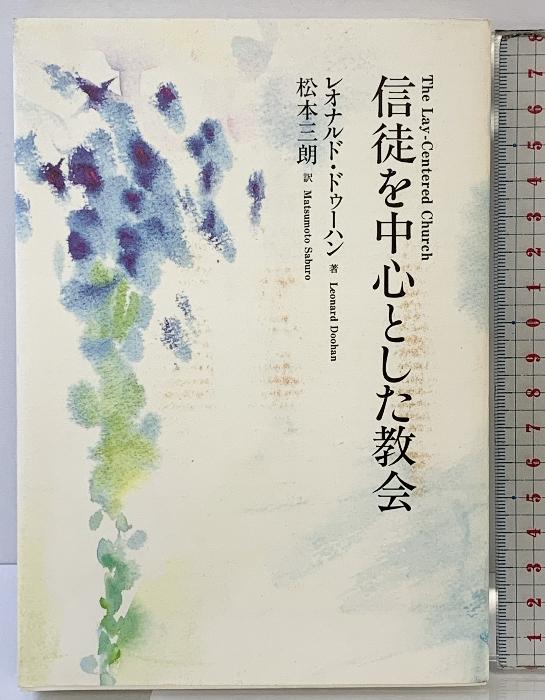 The Lay-Centered Church
信徒を中心とした教会
レオナルド・ドゥーハン 著 Leonard Doohan
松本三朗 訳 Matsumoto Saburo
8
7
6
5
4
3
2
1
0
9
8
7
6
5
4
3
2
1